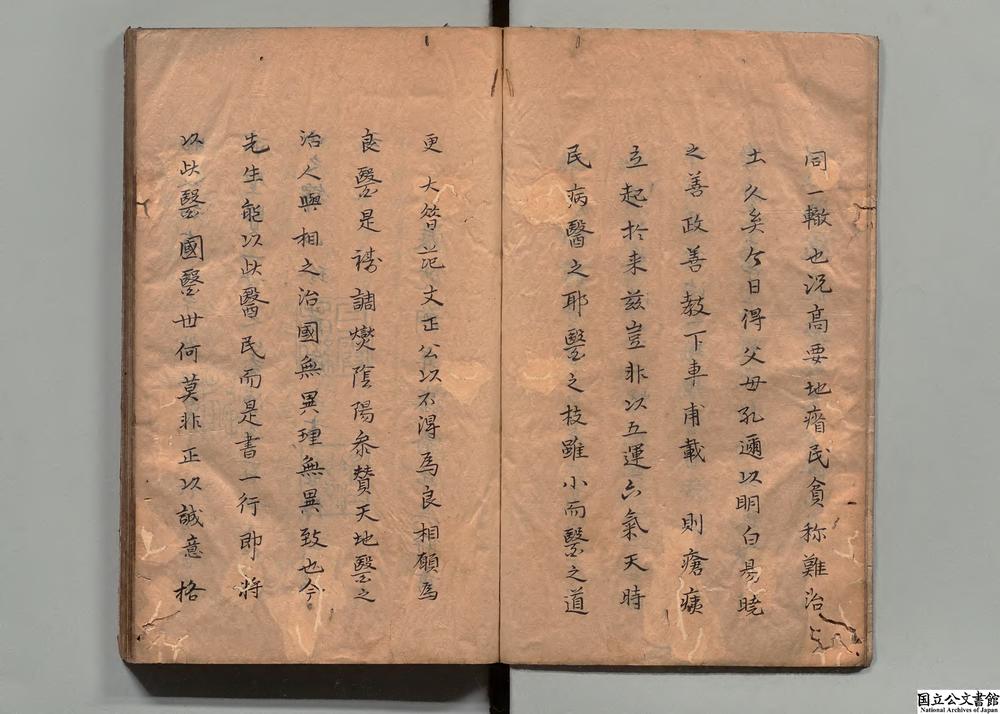 同一轍也況高要地瘠民貧称難治
土久矣今日得父母孔邇以明白易曉
之善政善教下車甫載則瘡痍
立起於来玆豈非以五運六氣天時
民病醫之耶毉之技雖小而毉之道
更大昔范文正公以不得爲良相願爲
良毉是裿調爕陰陽叅賛天地毉之
治人與相之治國無異理無異致也今
先生能以此醫民而是書一行即将
以此毉國毉世何莫非正以誠意格
国立公文書館
National Archives of Japan